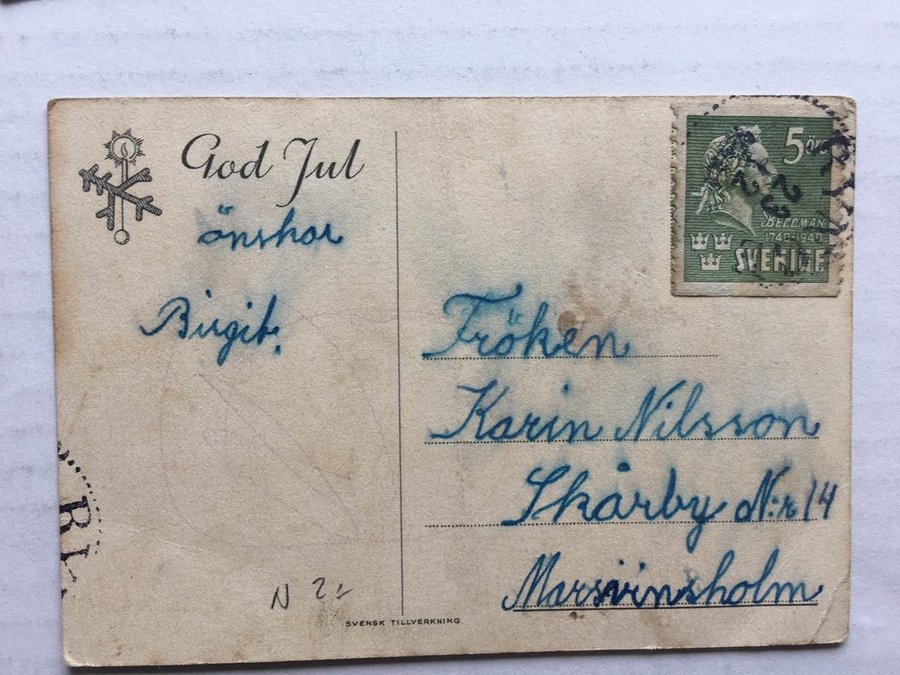 God Jul
önskar
Birgit.
5 öre
BELLMAN
1740-1940
SVERIGE
Fröken
Karin Nilsson
Skårby N:r 14
Marsvinsholm
N 2:-
SVENSK TILLVERKNING